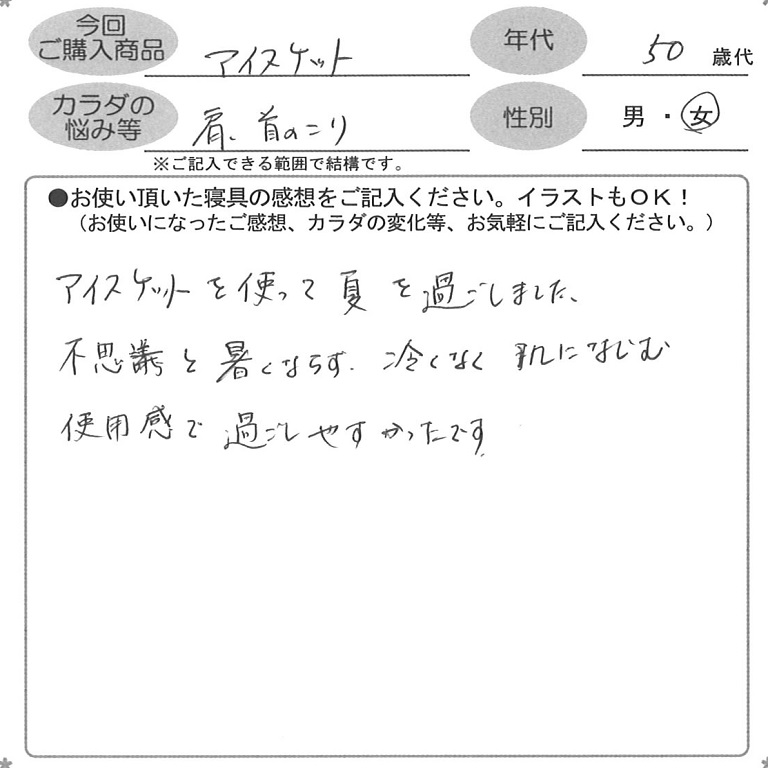 今回
ご購入商品
アイスケット
年代
50 歳代
カラダの
悩み等
肩、首のこり
性別
男・女
※ご記入できる範囲で結構です。
●お使い頂いた寝具の感想をご記入ください。イラストもOK!
(お使いになったご感想、カラダの変化等、お気軽にご記入ください。)
アイスケットを使って夏を過ごしました、
不思議と暑くならず、冷くなく肌になじむ
使用感で過ごしやすかったです。